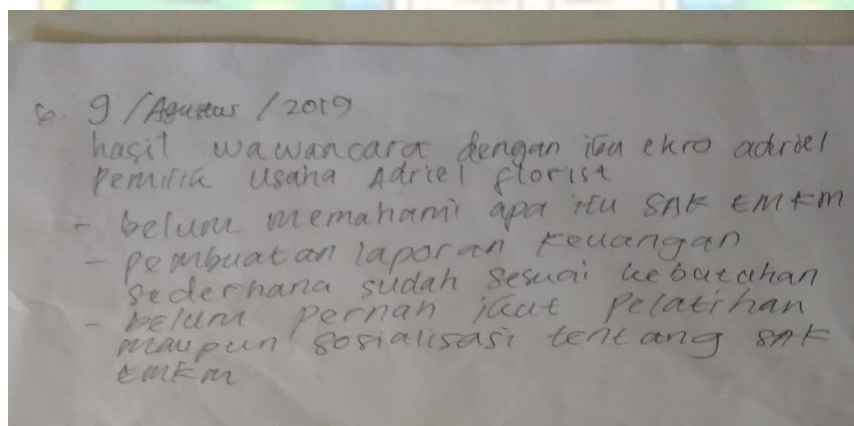 6. 9 / Agustus / 2019
hasil wawancara dengan ibu ekro adriel
Pemilik usaha Adriel florist
- belum memahami apa itu SAK EMKM
- pembuatan laporan keuangan
sederhana sudah sesuai kebutuhan
- belum pernah ikut pelatihan
maupun sosialisasi tentang SAK
EMKM